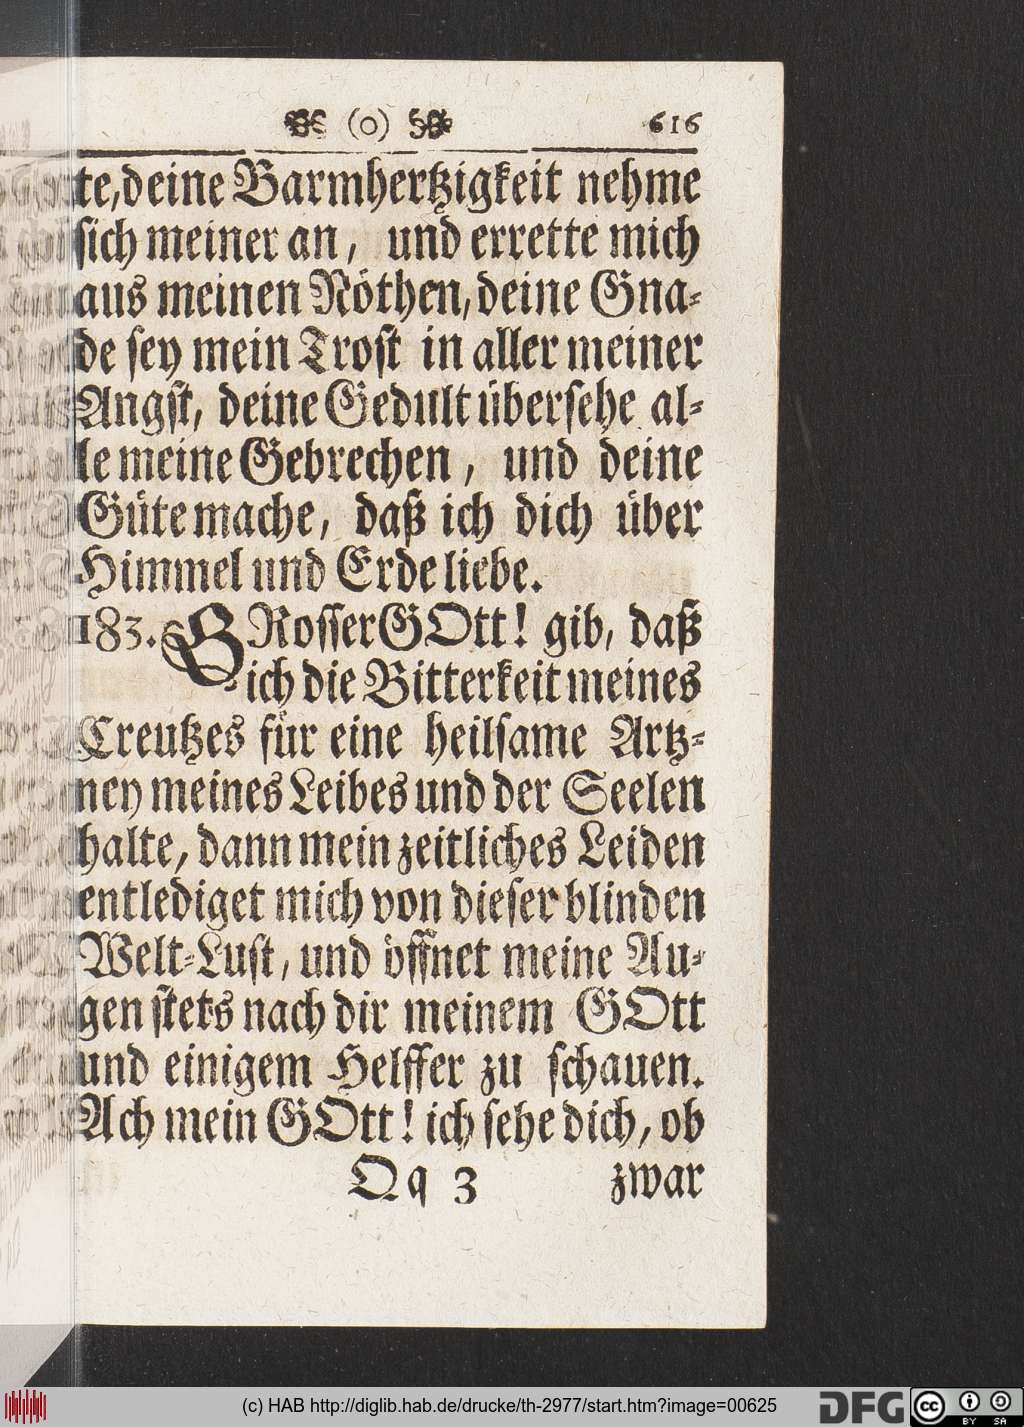 (o) 616
te, deine Barmhertzigkeit nehme
sich meiner an, und errette mich
aus meinen Nöthen, deine Gna-
de sey mein Trost in aller meiner
Angst, deine Gedult übersehe al-
le meine Gebrechen, und deine
Güte mache, daß ich dich über
Himmel und Erde liebe.
183. GRosser GOtt! gib, daß
ich die Bitterkeit meines
Creutzes für eine heilsame Artz-
ney meines Leibes und der Seelen
halte, dann mein zeitliches Leiden
entlediget mich von dieser blinden
Welt-Lust, und öffnet meine Au-
gen stets nach dir meinem GOtt
und einigem Helffer zu schauen.
Ach mein GOtt! ich sehe dich, ob
Qq 3 zwar
(c) HAB http://diglib.hab.de/drucke/th-2977/start.htm?image=00625
DFG cc BY SA